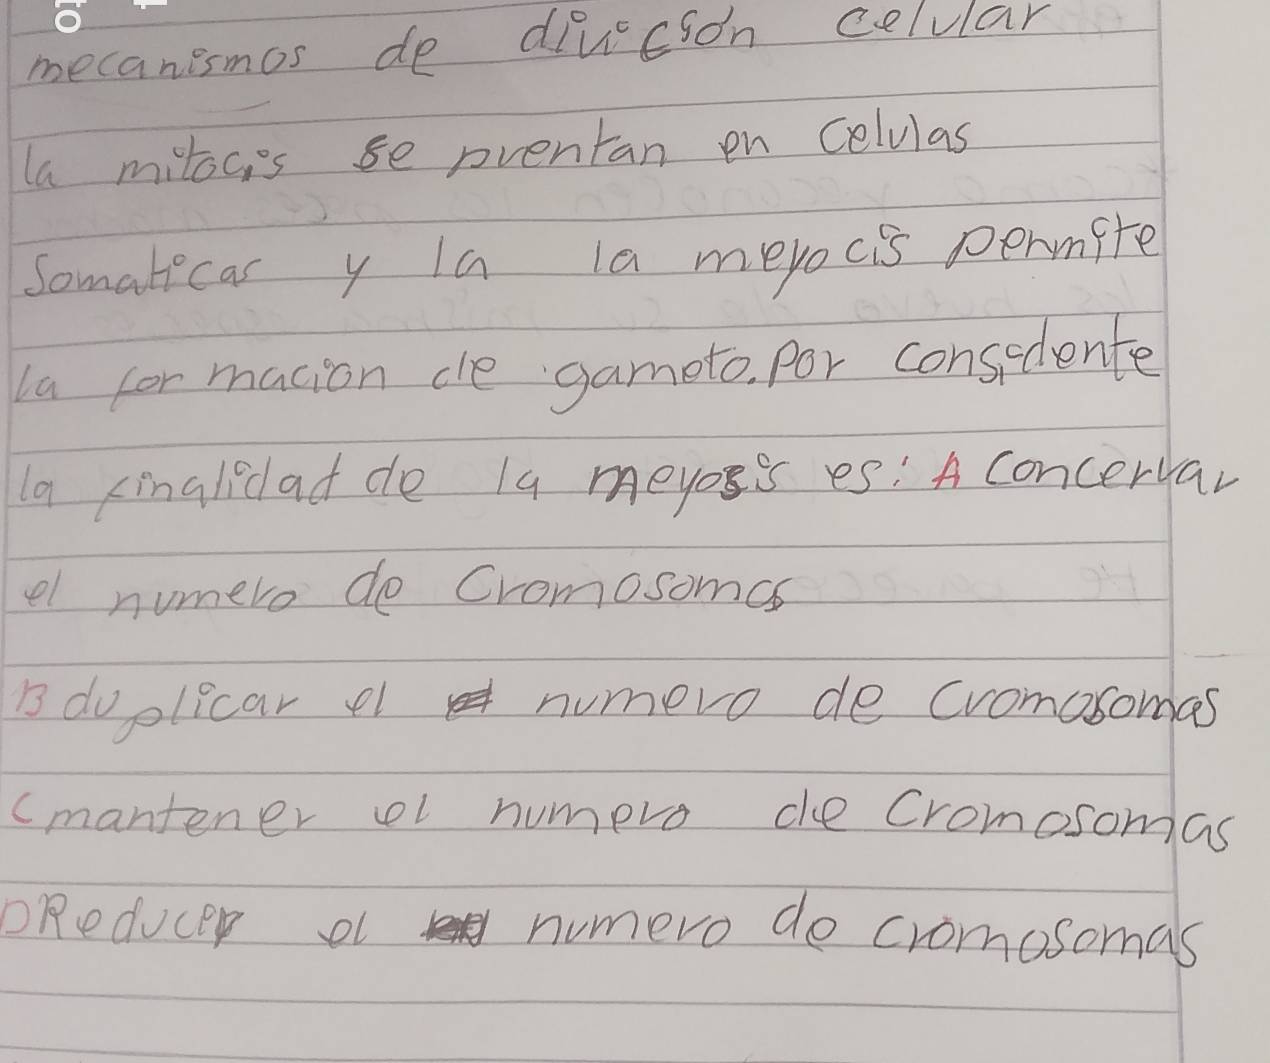 mecanismos de divicion celular
la mitocis se prentan en celulas
Somaticas y la la meyocis permite
la formacion de gameto. Por considente
la finalidad de la meyosis es: A concervar
el numero de Cromosomas
B duplicar el numero de cromosomas
C mantener el numero de Cromosomas
D Reducir el numero de cromosomas